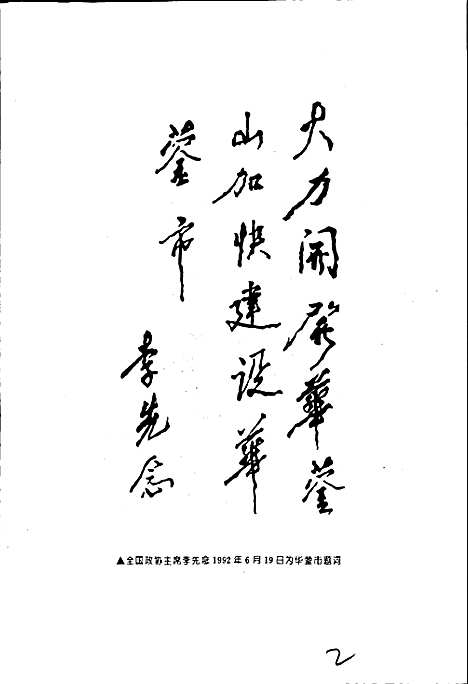 大力开发華蓥
山加快建设華
蓥市
李先念
▲全国政协主席李先念1992年6月19日为华蓥市题词
2